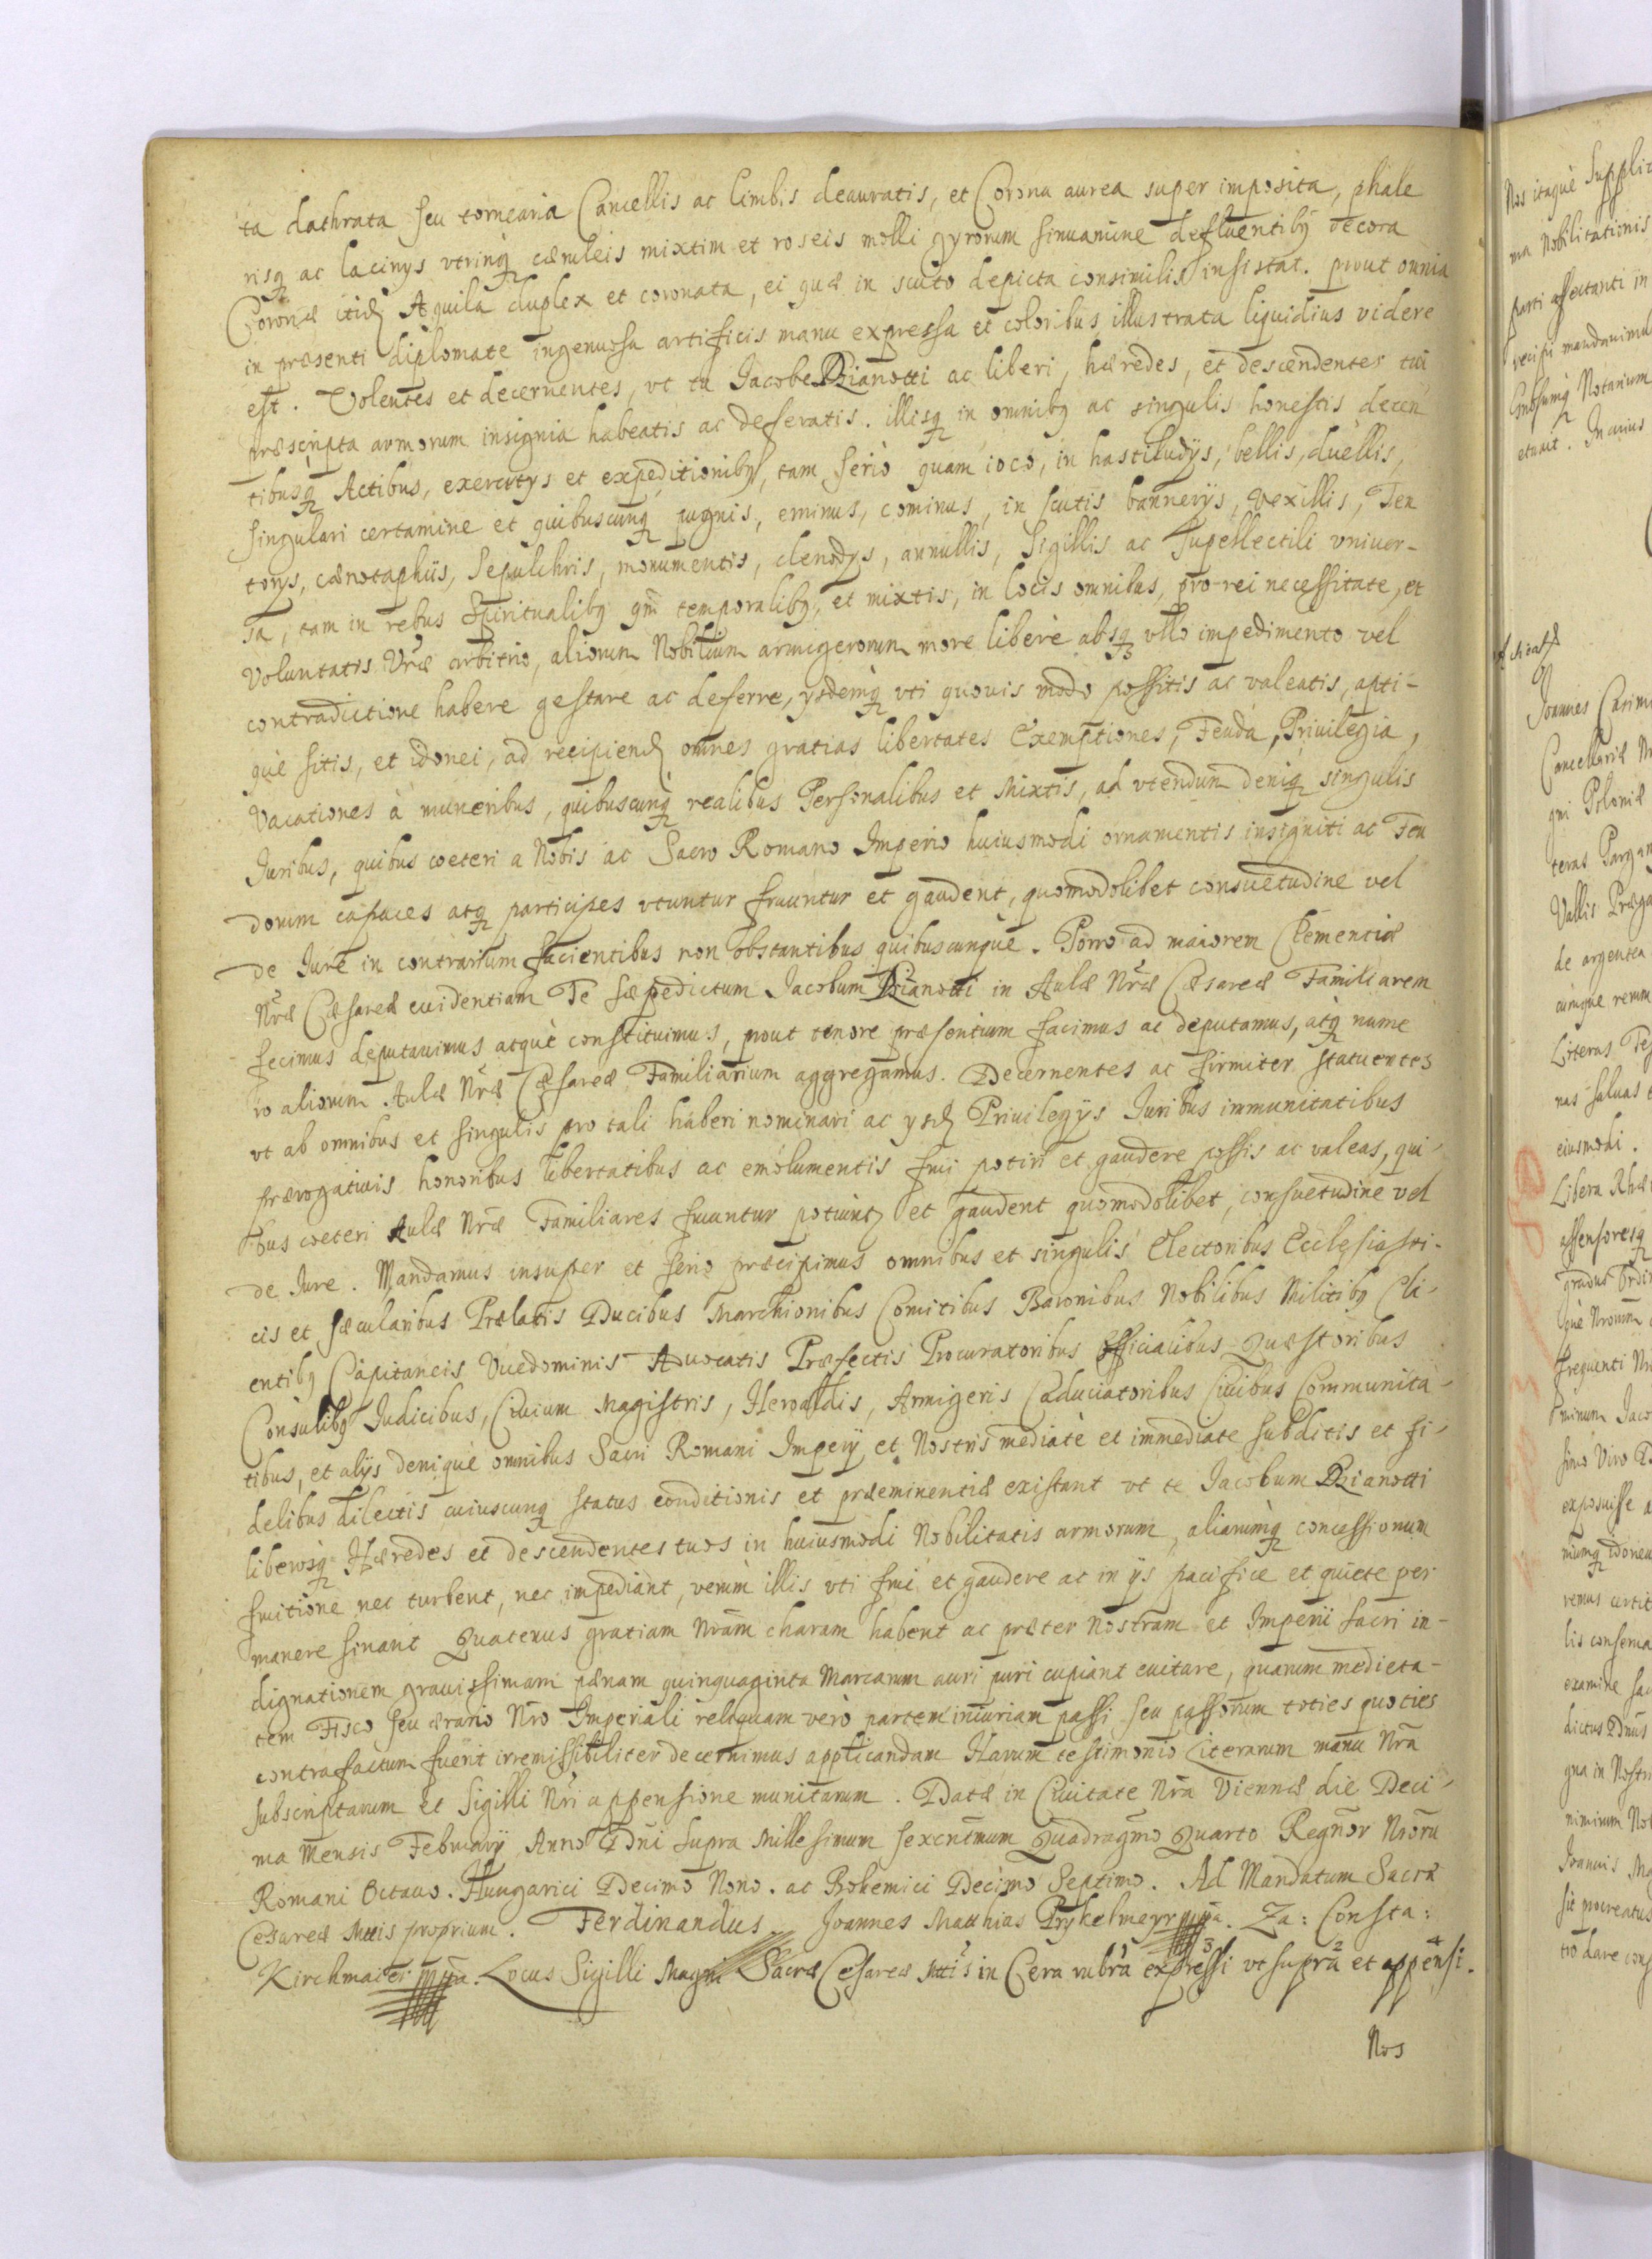 ta clathrata seu tornearia Cancellis ac limbis deauratis, et Corona aurea super imposita, phale
risq ac lacinys vtrinq cæruleis mixtim et roseis molli gyrorum sinuamine defluentibq decora
Coronæ itid Aquila duplex et coronata, ei quæ in scuto depicta consimilis insistat. prout omnia
in præsenti diplomate ingenuosa artificis manu expressa et coloribus illustrata liquidius videre
est. Volentes et decernentes, vt tu Jacobe Bianotti ac liberi, hæredes, et descendentes tui
præscripta armorum insignia habeatis ac deferatis. illisq in omnibq ac singulis honestis decen
tibusq Actibus, exercitys et expeditionibq, tam serio quam ioco, in hastiludys, bellis, duellis,
singulari certamine et quibuscunq pugnis, eminus, cominus, in scutis bannerys, vexillis, Ten
torys, cænotaphiis, Sepulchris, monumentis, clenodys, annullis, Sigillis ac Supellectili vniuer-
sa, tam in rebus Spiritualibq qm temporalibq, et mixtis, in locis omnibus, pro rei necessitate, et
Voluntatis Vræ arbitrio, aliorum Nobilium armigerorum more liberè absq vllo impedimento vel
contradictione habere gestare ac deferre, ysdemq vti quouis modo possitis ac valeatis, apti-
què sitis, et idonei, ad recipiend omnes gratias libertates Exemptiones, Feuda, Priuilegia,
Vacationes à muneribus, quibuscunq realibus Personalibus et Mixtis, ad vtendum deniq singulis
Juribus, quibus coeteri a Nobis ac Sacro Romano Imperio huiusmodi ornamentis insigniti ac Feu
dorum capaces atq participes vtuntur fruuntur et gaudent, quomodolibet consuetudine vel
de Jure in contrarium facientibus non obstantibus quibuscunque. Porro ad maiorem Clementiæ
Nræ Cæsareæ euidentiam Te sæpedictum Jacobum Bianotti in Aulæ Nræ Cæsareæ Familiarem
fecimus deputauimus atquè constituimus, prout tenore præsentium facimus ac deputamus, atq nume
ro aliorum Aulæ Nræ Cæsareæ Familiarium aggregamus. Decernentes ac firmiter statuentes
vt ab omnibus et singulis pro tali haberi nominari ac ysd Priuilegys Juribus immunitatibus
prærogatiuis honoribus libertatibus ac emolumentis frui potiri et gaudere possis ac valeas, qui-
bus coeteri Aulæ Nræ Familiares fruuntur potiunt et gaudent quomodolibet, consuetudine vel
de Jure. Mandamus insuper et serio præcipimus omnibus et singulis Electoribus Ecclesiasti-
cis et sæcularibus Prælatis Ducibus Marchionibus Comitibus Baronibus Nobilibus Militibq Cli-
entibq Capitaneis Vicedominis Aduocatis Præfectis Procuratoribus Officialibus Quæstoribus
Consulibq Judicibus, Ciuium Magistris, Heroaldis, Armigeris Caduciatoribus Ciuibus Communita-
tibus, et alys denique omnibus Sacri Romani Impery et Nostris mediatè et immediate subditis et fi-
delibus dilectis cuiuscunq status conditionis et præeminentiæ existant vt te Jacobum Bianotti
liberosq Hæredes et descendentes tuos in huiusmodi Nobilitatis armorum, aliarumq concessionum
fruitione nec turbent, nec impediant, verùm illis vti frui et gaudere ac in ys pacifice et quiete per
manere sinant Quatenus gratiam Nram charam habent ac præter Nostram et Imperii sacri in-
dignationem grauissimam pænam quinquaginta Marcarum auri puri cupiant euitare, quarum medieta-
tem Fisco seu ærario Nro Imperiali reliquam verò partem iniuriam passi seu passorum toties quoties
contrafactum fuerit irremissibiliter decernimus applicandam Harum testimonio Literarum manu Nra
subscriptarum et Sigilli Nri appensione munitarum. Datæ in Ciuitate Nra Viennæ die Deci-
ma Mensis February Anno Dni supra Millesimum sexcentmum Quadragmo Quarto Regnor Nroru
Romani Octauo. Hungarici Decimo Nono. ac Bohemici Decimo Septimo. Ad Mandatum Sacræ
Cesareæ Mttis proprium. Ferdinandus Joannes Matthias Prykelmeyr mpa. Za: Consta:
Kirchmaier mpa. Locus Sigilli Magni Sacræ Cesareæ Mttis in Cera rubra expressi vt supra et appensi.
Nos
Nos itaquè Supplic
ma Nobilitationis
parti affectanti in
recipi mandauimu
Notarium
etrait. In cuius
Joannes Casimi
Cancellariæ
gni Poloniæ
teras Pargam
Vallis Præga
de argentea
cumque rerum
Literas Tes
nas saluas
eiusmodi.
Libera Rhæ
assensoresq
gradus Ordin
què Nrorum
frequenti Nr
minum Jaco
simo Viro D
exposuisse a
niumq idoneu
remus certit
lis conserua
examine sac
dictus Dnus
gna in Nostri
nimirum Not
Joannis Ma
sit procreatus
tio dare cons